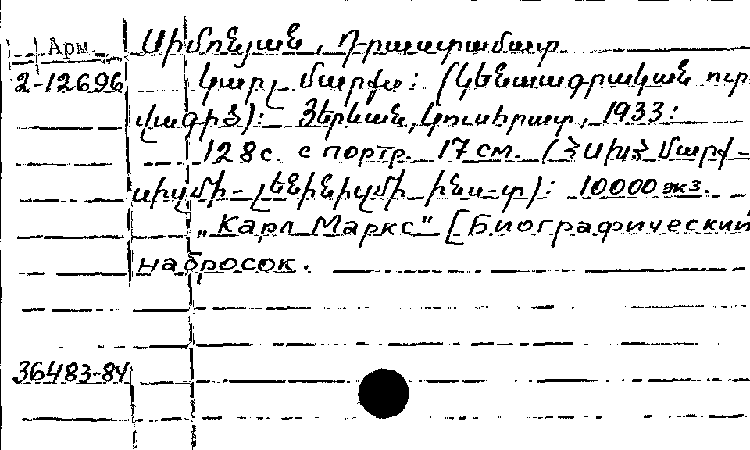 Арм. Սիմոնյան, Դրաստամատ
2-12696 Կարլ Մարքս: (Կենսագրական ուր-
վագիծ): Յերևան, Կուսհրատ, 1933:
128 с. с портр. 17 см. (ՀՍԽՀ Մարք-
սիզմի-լենինիզմի ինս-տ): 10000 экз.
„Карл Маркс" [Биографический
набросок.
36483-84